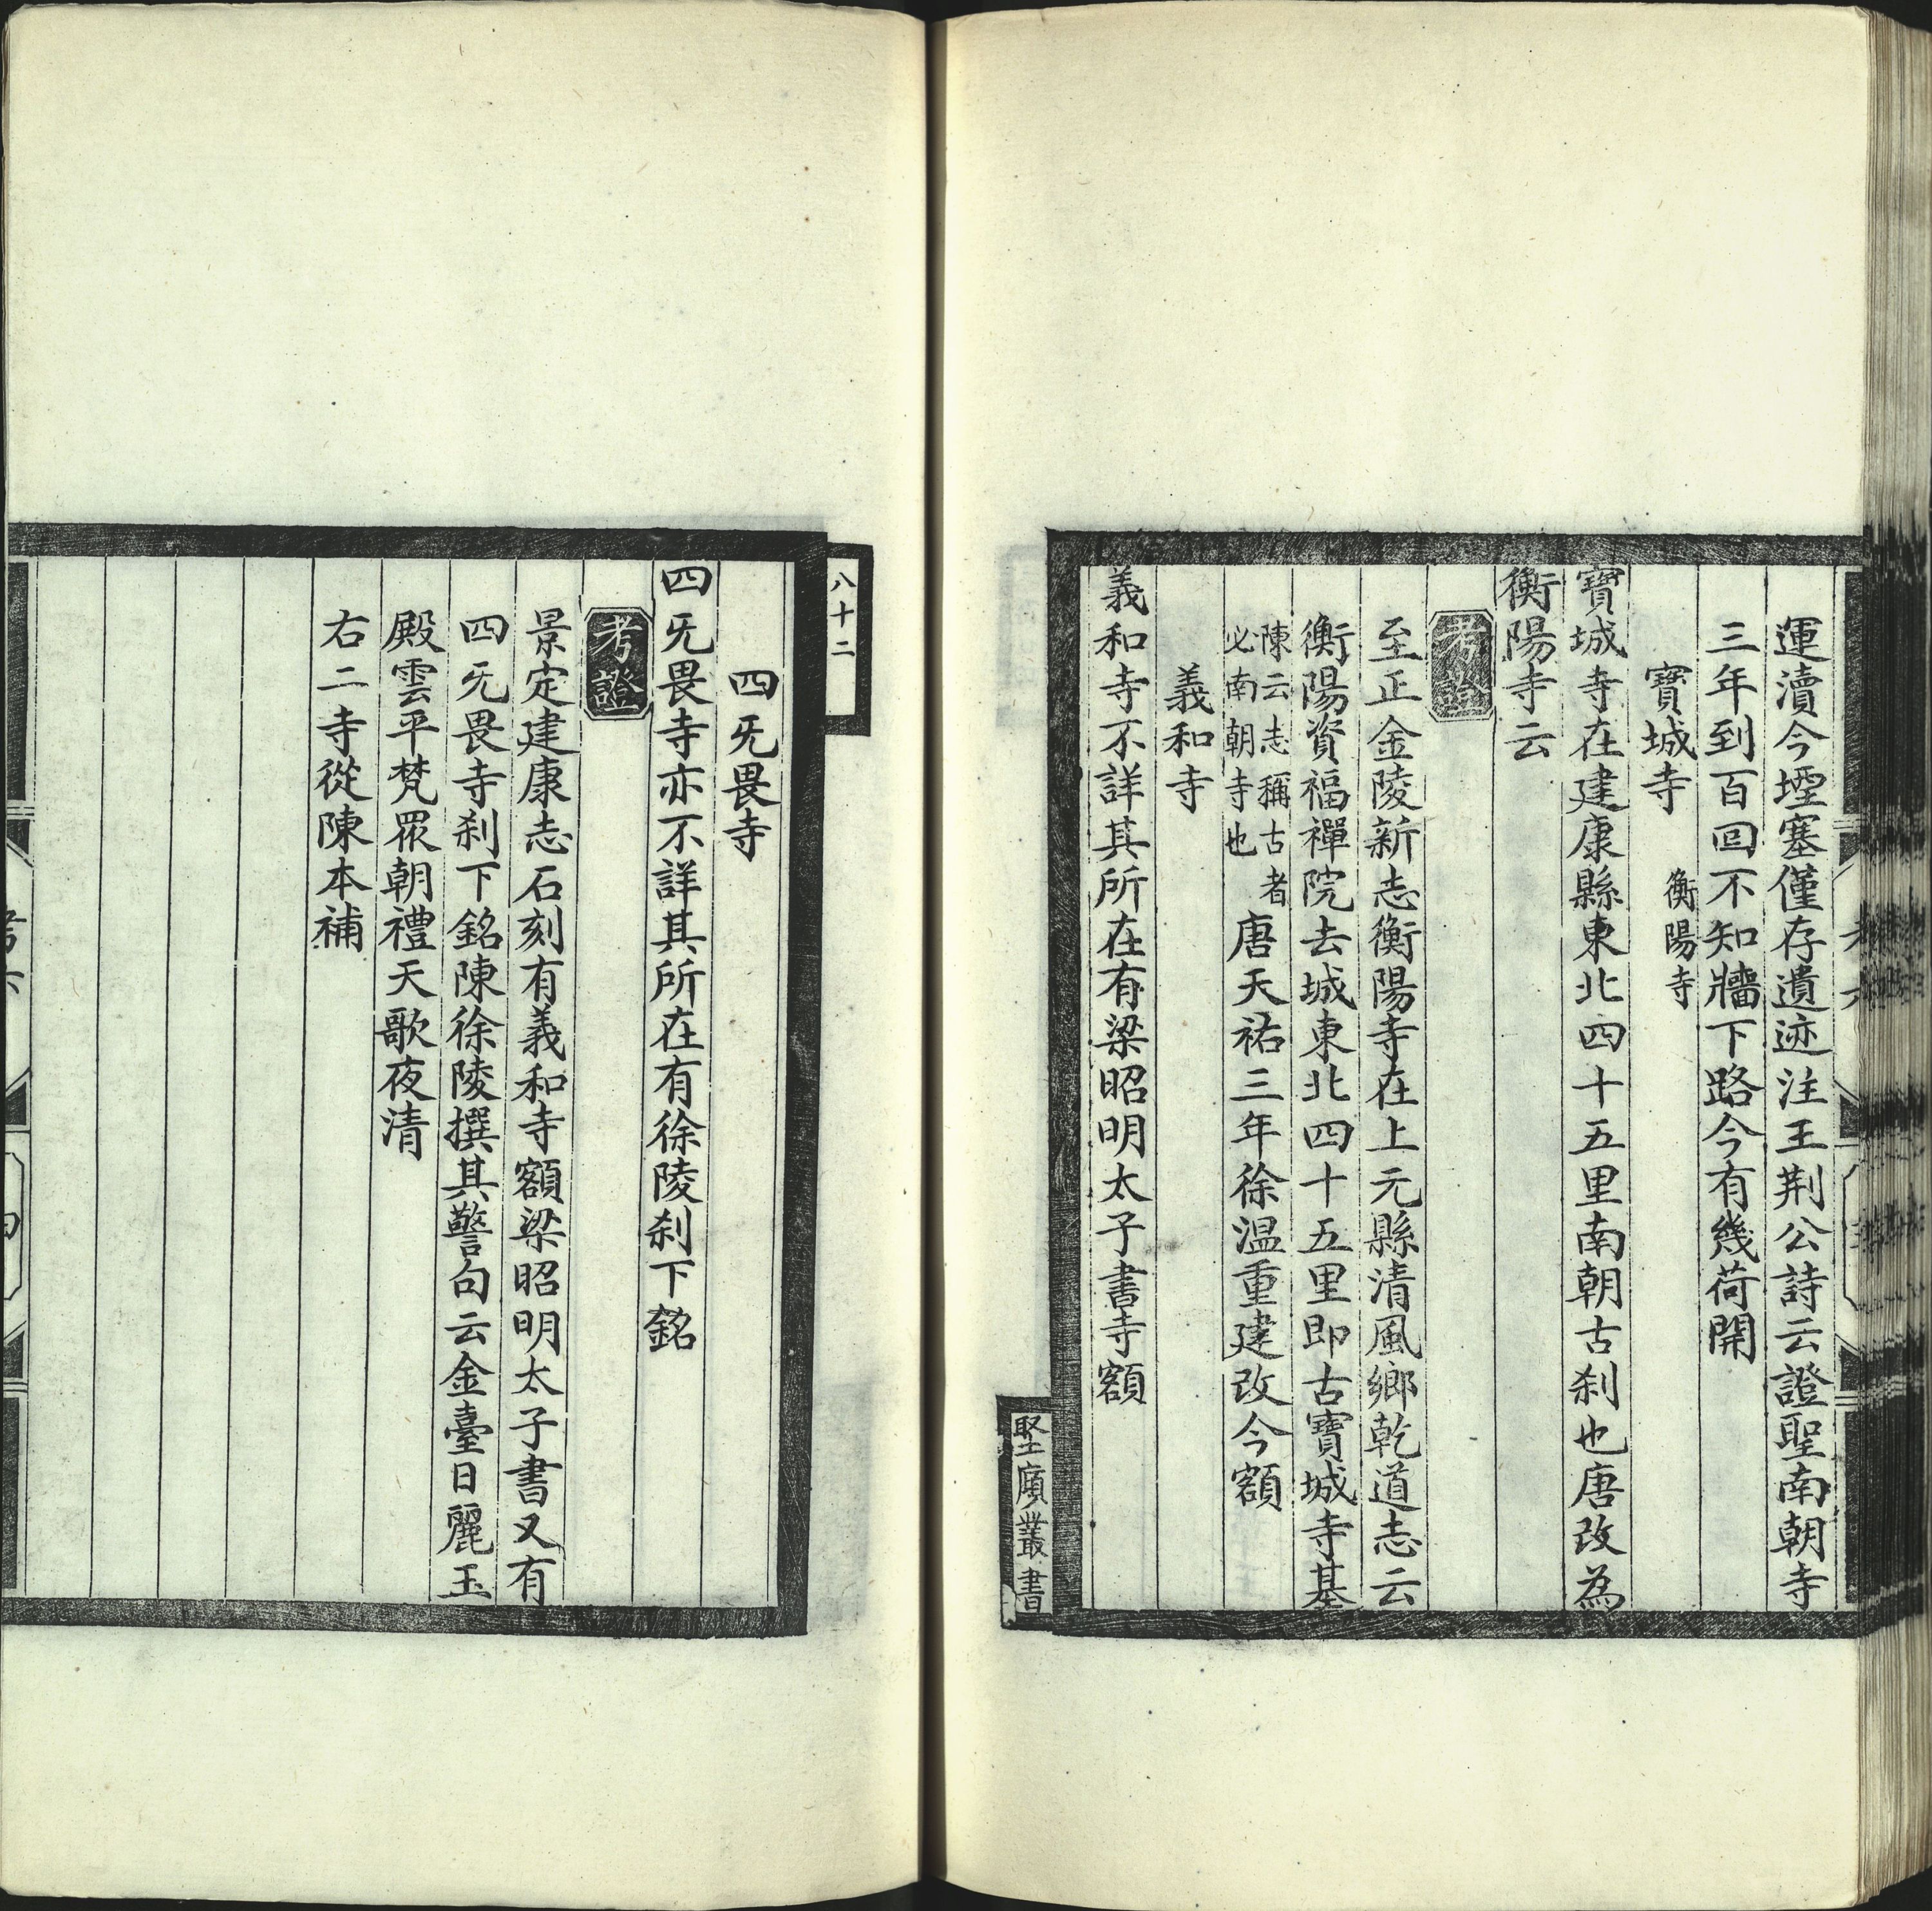 運瀆今堙塞僅存遺迹注王荆公詩云證聖南朝寺
三年到百回不知牆下路今有幾荷開
寶城寺 衡陽寺
寶城寺在建康縣東北四十五里南朝古刹也唐改為
衡陽寺云
考證
至正金陵新志衡陽寺在上元縣清風鄉乾道志云
衡陽資福禪院去城東北四十五里即古寶城寺基
陳云志稱古者
必南朝寺也
唐天祐三年徐温重建改今額
義和寺
義和寺不詳其所在有梁昭明太子書寺額
堅廎叢書
八十二
四旡畏寺
四旡畏寺亦不詳其所在有徐陵刹下銘
考證
景定建康志石刻有義和寺額梁昭明太子書又有
四旡畏寺刹下銘陳徐陵撰其警句云金臺日麗玉
殿雲平梵眾朝禮天歌夜清
右二寺從陳本補